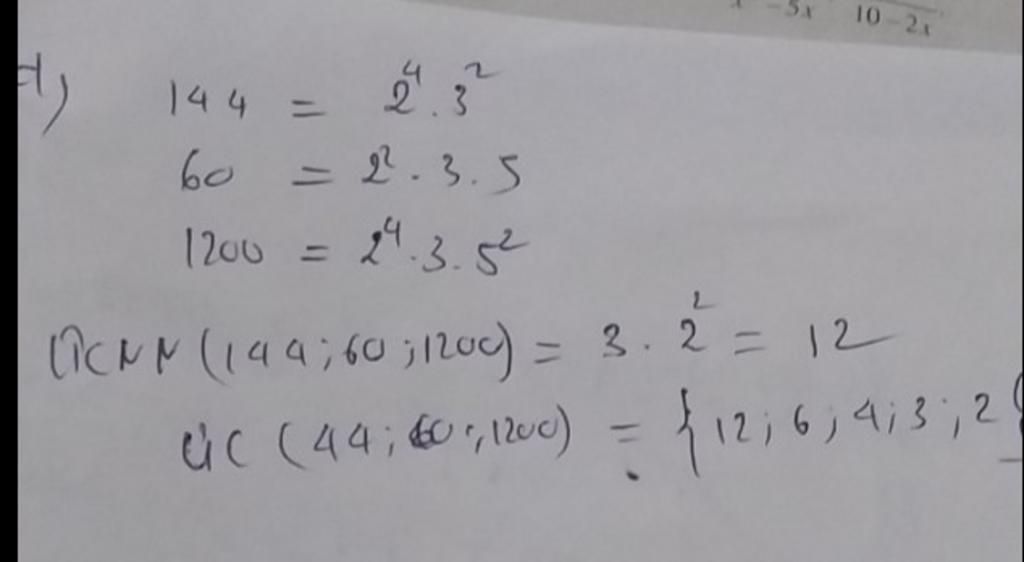 -5x 10-2x
d) 144 = 2⁴.3²
60 = 2².3.5
1200 = 2⁴.3.5²
ƯCNN(144;60;1200) = 3.2² = 12
ƯC(44;60;1200) = {12;6;4;3;2